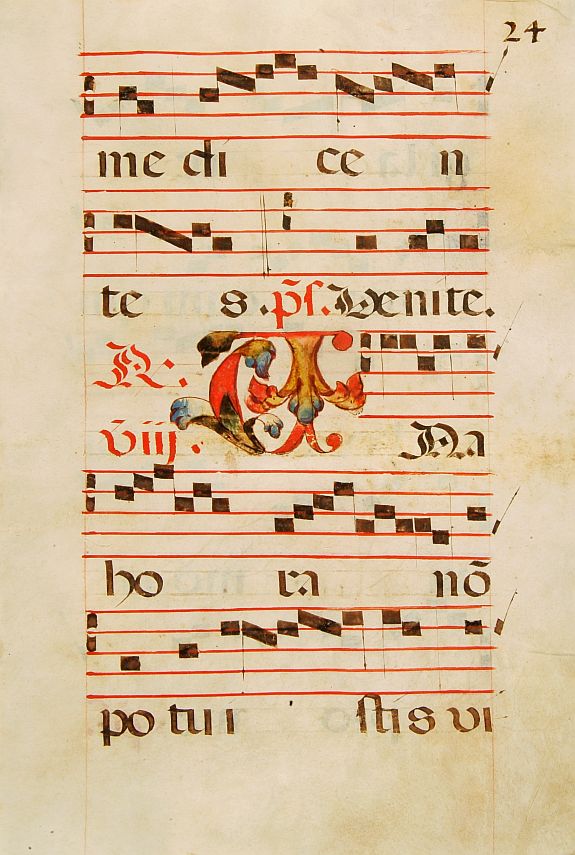 24
me di ce n
te s. p̄s. Venite.
℟.
viij. U Na
ho ra nō
po tui stis vi